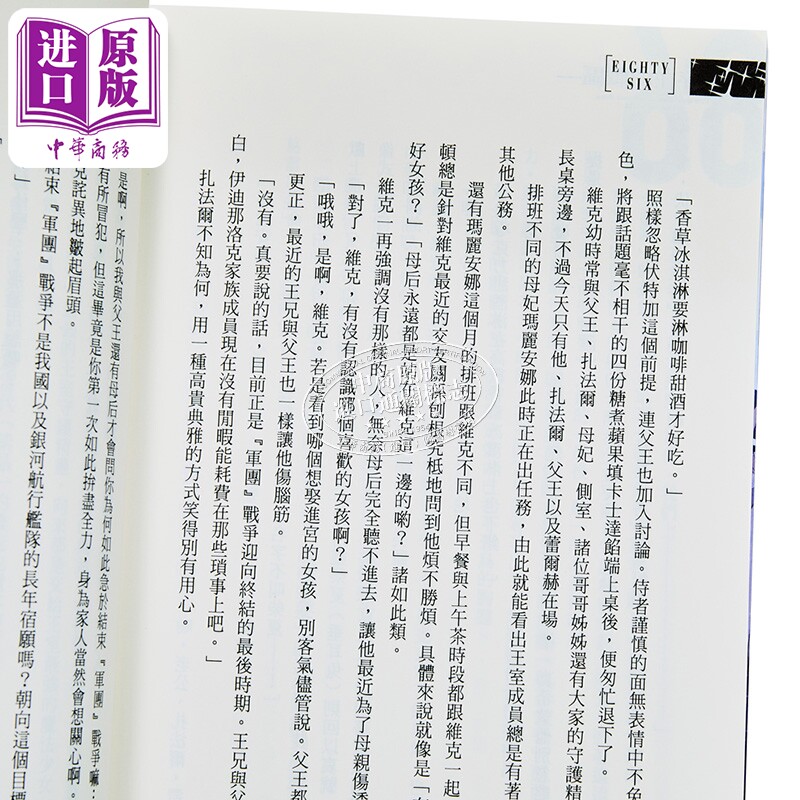 原版
进口
中華商務
[EIGHTY
SIX]
「香草冰淇淋要淋咖啡甜酒才好吃。」
照樣忽略伏特加這個前提，連父王也加入討論。侍者謹慎的面無表情中不免
色，將跟話題毫不相干的四份糖煮蘋果填卡士達餡端上桌後，便匆忙退下了。
維克幼時常與父王、扎法爾、母妃、側室、諸位哥哥姊姊還有大家的守護精
長桌旁邊，不過今天只有他、扎法爾、父王以及蕾爾赫在場。
排班不同的母妃瑪麗安娜此時正在出任務，由此就能看出王室成員總是有著
其他公務。
還有瑪麗安娜這個月的排班跟維克不同，但早餐與上午茶時段都跟維克一起
頓總是針對維克最近的交友關係刨根究柢地問到他煩不勝煩。具體來說就像是「
好女孩？」「母后永遠都是站在維克這一邊的喲？」諸如此類。
維克一再強調沒有那樣的人，無奈母后完全聽不進去，讓他最近為了母親傷透
「對了，維克，有沒有認識哪個喜歡的女孩啊？」
「哦哦，是啊，維克。若是看到哪個想娶進宮的女孩，別客氣儘管說。父王都
更正，最近的王兄與父王也一樣讓他傷腦筋。
「沒有。真要說的話，目前正是『軍團』戰爭迎向終結的最後時期。王兄與父
白，伊迪那洛克家族成員現在沒有閒暇能耗費在那些瑣事上吧。」
扎法爾不知為何，用一種高貴典雅的方式笑得別有用心。
是啊，所以我與父王還有母后才會問你為何如此急於結束『軍團』戰爭嘛：
有所冒犯，但這畢竟是你第一次如此拚盡全力，身為家人當然會想關心啊。
克詫異地皺起眉頭。
結束『軍團』戰爭不是我國以及銀河航行艦隊的長年宿願嗎？朝向這個目標